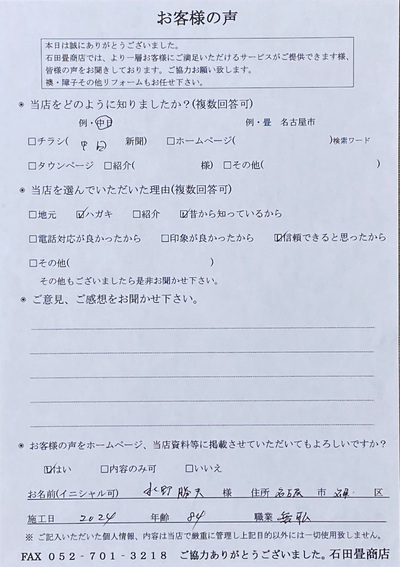 お客様の声
本日は誠にありがとうございました。
石田畳商店では、より一層お客様にご満足いただけるサービスがご提供できます様、
皆様の声をお聞きしております。ご協力お願い致します。
襖・障子その他リフォームもお任せ下さい。
※ 当店をどのように知りましたか？(複数回答可)
例・中日 例・畳 名古屋市
□チラシ( 中日 新聞) □ホームページ( )検索ワード
□タウンページ □紹介( 様) □その他( )
※ 当店を選んでいただいた理由(複数回答可)
□地元 ☑ハガキ □紹介 ☑昔から知っているから
□電話対応が良かったから □印象が良かったから ☑信頼できると思ったから
□その他( )
その他もございましたら是非お聞かせ下さい。
※ ご意見、ご感想をお聞かせ下さい。
※ お客様の声をホームページ、当店資料等に掲載させていただいてもよろしいですか？
☑はい □内容のみ可 □いいえ
お名前(イニシャル可) 水野 勝夫 様 住所 名古屋 市 区
施工日 2024 年齢 84 職業 無職
※ ご記入いただいた個人情報、内容は当店で厳重に管理し上記目的以外には一切使用致しません。
FAX 052-701-3218 ご協力ありがとうございました。石田畳商店